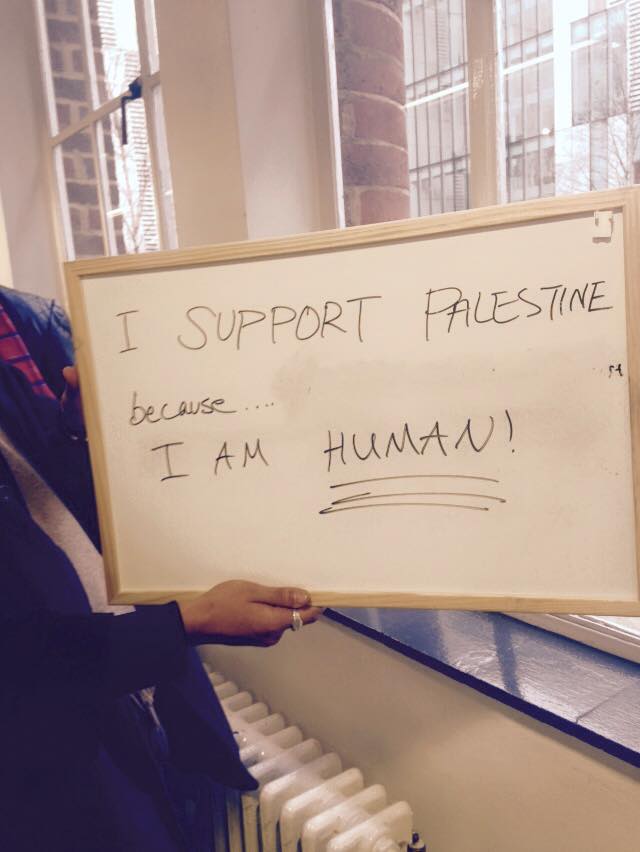 I SUPPORT PALESTINE
because....
I AM HUMAN!